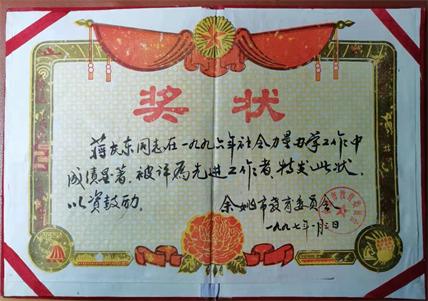 奖状
蒋庆东同志在一九九六年社会力量办学工作中
成绩显著，被评为先进工作者，特发此状，
以资鼓励。
余姚市教育委员会
一九九七年一月三日